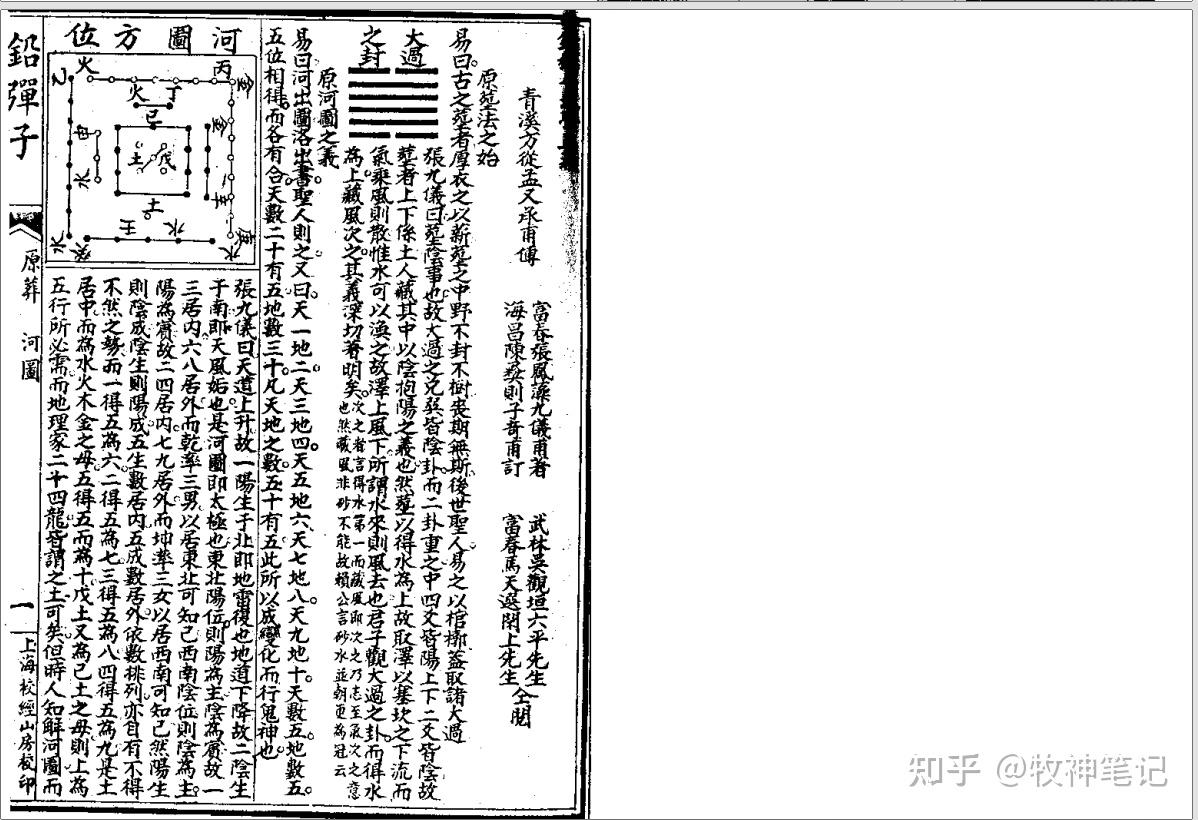 青溪方從孟又承甫傳
富春張鳳藻九儀甫著
海昌陳燊則子奇甫訂
武林吳觀垣六平先生
富春馬天選閑上先生
仝閱
原塟法之始
易曰古之塟者厚衣之以薪塟之中野不封不樹喪期無斯後世聖人易之以棺槨蓋取諸大過
大過
之封
張九儀曰塟陰事也故大過之兌巽皆陰卦而二卦重之中四爻皆陽上下二爻皆陰故
塟者上下係土人藏其中以陰抱陽之義也然塟以得水為上故取澤以塞坎之下流而
氣乘風則散惟水可以渙之故澤上風下所謂水來則風去也君子觀大過之卦而得水
為上藏風次之其義深切著明矣
次之者言得水第一而藏風即次之乃志至氣次之意
也然藏風非砂不能故賴公言砂水並朝更為冠云
原河圖之義
易曰河出圖洛出書聖人則之又曰天一地二天三地四天五地六天七地八天九地十天數五地數五
五位相得而各有合天數二十有五地數三十凡天地之數五十有五此所以成變化而行鬼神也
河圖方位
火
丙
金
火
丁
已
金
甲
土
戊
辛
水
土
水
壬
水
癸
庚
水
張九儀曰天道上升故一陽生于北即地雷復也地道下降故二陰生
于南即天風姤也是河圖即太極也東北陽位則陽為主陰為賓故一
三居内六八居外而乾率三男以居東北可知已西南陰位則陰為主
陽為賓故二四居内七九居外而坤率三女以居西南可知已然陽生
則陰成陰生則陽成五生數居内五成數居外依數排列亦自有不得
不然之勢而一得五為六二得五為七三得五為八四得五為九是土
居中而為水火木金之母五得五而為十戊土又為己土之母則上為
五行所必需而地理家二十四龍皆謂之土可矣但時人知解河圖而
鉛彈子
原葬 河圖
一
上海校經山房校印
知乎 @牧神笔记